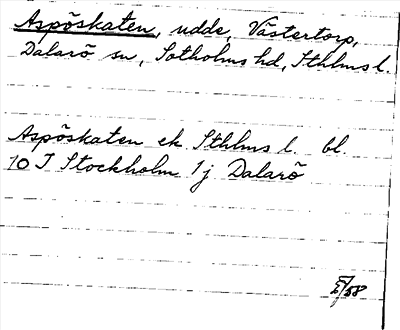 Aspöskaten, udde, Västertorp,
Dalarö sn, Sotholms hd, Sthlms l.
Aspöskaten ek Sthlms l. bl.
10 I Stockholm 1j Dalarö